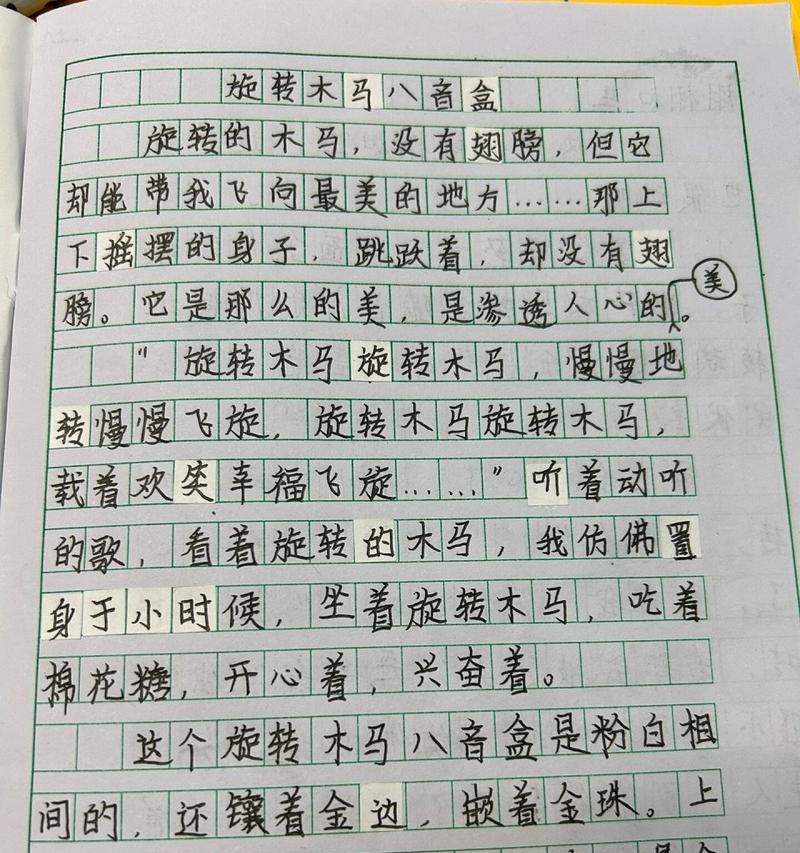 旋转木马八音盒
旋转的木马，没有翅膀，但它
却能带我飞向最美的地方……那上
下摇摆的身子，跳跃着，却没有翅
膀。它是那么的美，是渗透人心的美。
“旋转木马旋转木马，慢慢地
转慢慢飞旋，旋转木马旋转木马，
载着欢笑幸福飞旋……”听着动听
的歌，看着旋转的木马，我仿佛置
身于小时候，坐着旋转木马，吃着
棉花糖，开心着，兴奋着。
这个旋转木马八音盒是粉白相
间的，还镶着金边，嵌着金珠。上